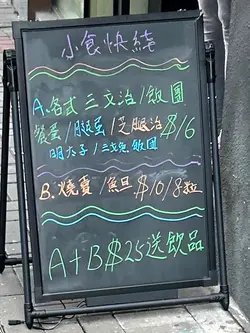 小食快綫
A. 各式三文治/飯團
餐蛋/腿蛋/芝腿治 $16
明太子/三文魚飯團
B. 燒賣/魚旦 $10/8粒
A+B $25送飲品